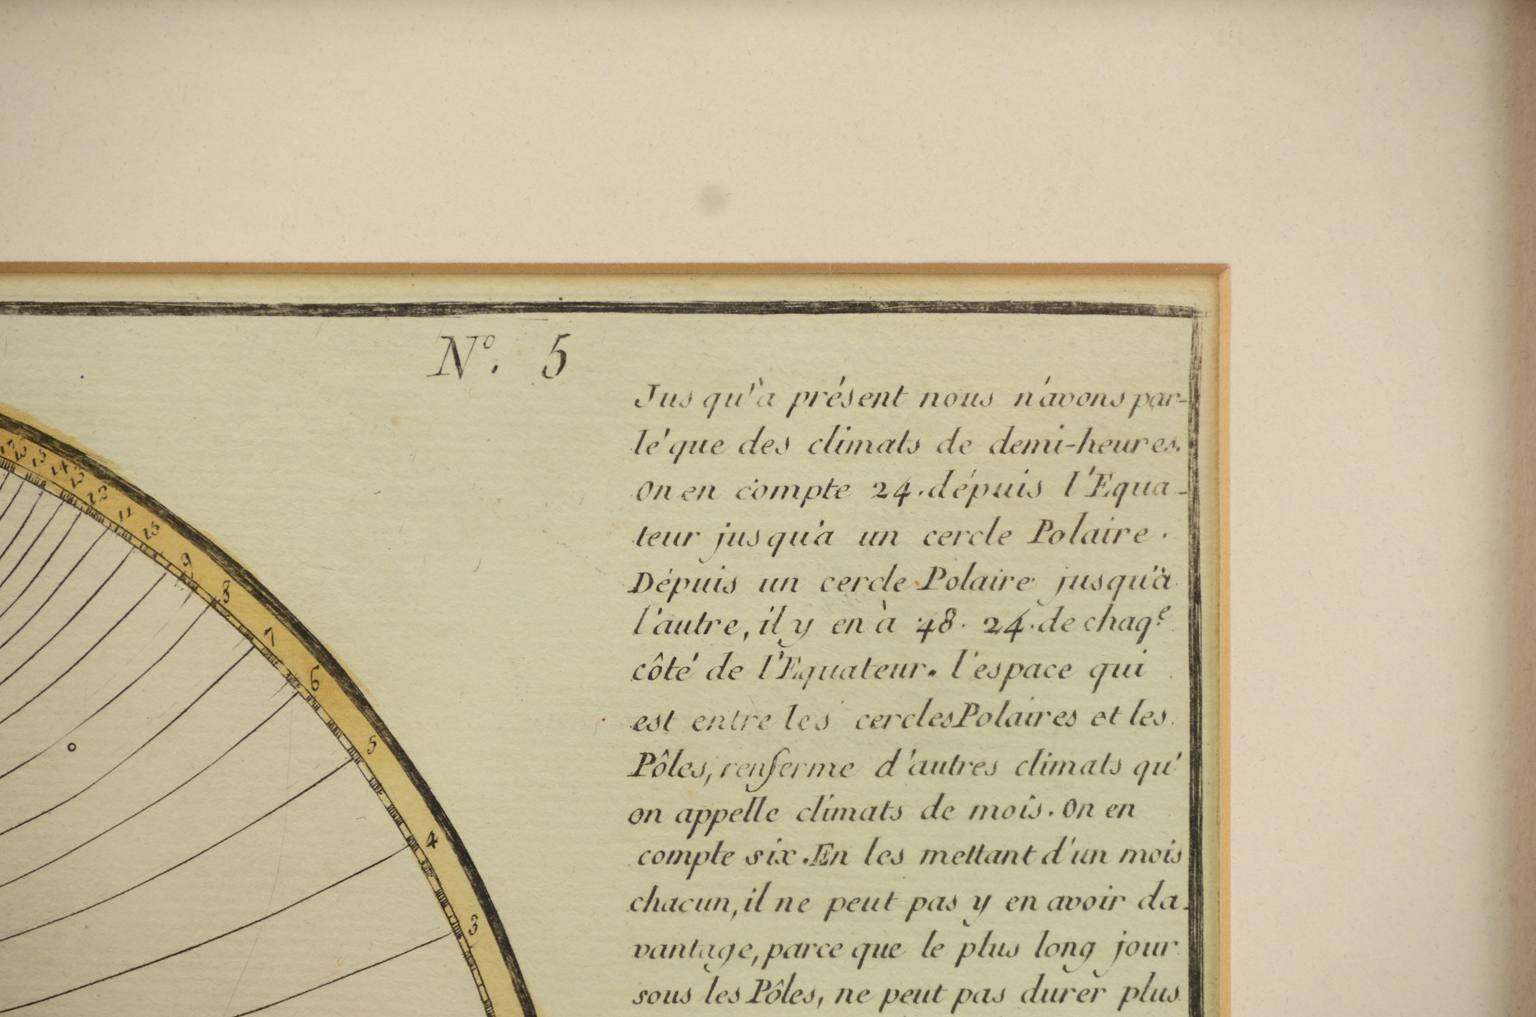 N°. 5
Jusqu'à présent nous n'avons par-
lé que des climats de demi-heures.
On en compte 24. dépuis l'Equa-
teur jusqu'à un cercle Polaire.
Dépuis un cercle Polaire jusqu'à
l'autre, il y en à 48. 24. de chaq.e
côté de l'Equateur. l'espace qui
est entre les cercles Polaires et les
Pôles, renferme d'autres climats qu'
on appelle climats de mois. On en
compte six. En les mettant d'un mois
chacun, il ne peut pas y en avoir da-
vantage, parce que le plus long jour
sous les Pôles, ne peut pas durer plus
9
8
7
6
5
4
3